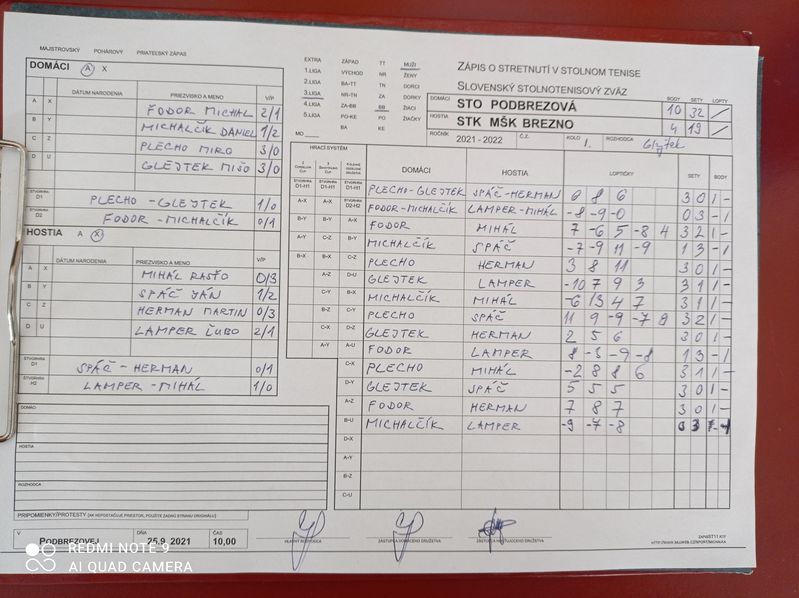 MAJSTROVSKÝ POHÁROVÝ PRIATEĽSKÝ ZÁPAS
DOMÁCI A X
DÁTUM NARODENIA PRIEZVISKO A MENO V/P
A X FODOR MICHAL 2/1
B Y MICHALČÍK DANIEL 1/2
C Z PLECHO MIRO 3/0
D U GLEJTEK MIŠO 3/0
ŠTVORHRA D1 PLECHO - GLEJTEK 1/0
ŠTVORHRA D2 FODOR - MICHALČÍK 0/1
HOSTIA A X
DÁTUM NARODENIA PRIEZVISKO A MENO V/P
A X MIHÁL RASŤO 0/3
B Y SPÁČ JÁN 1/2
C Z HERMAN MARTIN 0/3
D U LAMPER ĽUBO 2/1
ŠTVORHRA D1 SPÁČ - HERMAN 0/1
ŠTVORHRA H2 LAMPER - MIHÁL 1/0
DOMÁCI
HOSTIA
ROZHODCA
EXTRA ZÁPAD TT MUŽI
1.LIGA VÝCHOD NR ŽENY
2.LIGA BA-TT TN DORCI
3.LIGA NR-TN ZA DORKY
4.LIGA ZA-BB BB ŽIACI
5.LIGA PO-KE PO ŽIAČKY
MO BA KE
ZÁPIS O STRETNUTÍ V STOLNOM TENISE
SLOVENSKÝ STOLNOTENISOVÝ ZVÄZ
BODY SETY LOPTY
DOMÁCI STO PODBREZOVÁ 10 32 /
HOSTIA STK MŠK BREZNO 4 19 /
ROČNÍK 2021 - 2022 Č.Z. KOLO 1. ROZHODCA
HRACÍ SYSTÉM DOMÁCI HOSTIA LOPTIČKY SETY BODY
ŠTVORHRA D1-H1 ŠTVORHRA D1-H1 ŠTVORHRA D1-H1 PLECHO-GLEJTEK SPÁČ-HERMAN 0 8 6 3 0 1 -
A-X A-X ŠTVORHRA D2-H2 FODOR-MICHALČÍK LAMPER-MIHÁL -8 -9 -0 0 3 - 1
B-Y B-Y A-X FODOR MIHÁL 7 -6 5 -8 4 3 2 1 -
A-Y C-Z B-Y MICHALČÍK SPÁČ -7 -9 11 -9 1 3 - 1
B-X B-X C-Z PLECHO HERMAN 3 8 11 3 0 1 -
A-Z D-U GLEJTEK LAMPER -10 7 9 3 3 1 1 -
C-Y B-X MICHALČÍK MIHÁL -6 13 4 7 3 1 1 -
B-Z C-Y PLECHO SPÁČ 11 9 -9 -7 8 3 2 1 -
C-X D-Z GLEJTEK HERMAN 2 5 6 3 0 1 -
A-Y A-U FODOR LAMPER 8 -3 -9 -8 1 3 - 1
C-X PLECHO MIHÁL -2 8 8 6 3 1 1 -
D-Y GLEJTEK SPÁČ 5 5 5 3 0 1 -
A-Z FODOR HERMAN 7 8 7 3 0 1 -
B-U MICHALČÍK LAMPER -9 -7 -8 0 3 - 1
D-X
A-Y
B-Z
C-U
PRIPOMIENKY/PROTESTY (AK NEPOSTAČUJE PRIESTOR, POUŽITE ZADNÚ STRANU ORIGINÁLU)
V PODBREZOVEJ DŇA 25.9.2021 ČAS 10,00
HLAVNÝ ROZHODCA ZÁSTUPCA DOMÁCEHO DRUŽSTVA ZÁSTUPCA HOSŤUJÚCEHO DRUŽSTVA
REDMI NOTE 9
AI QUAD CAMERA